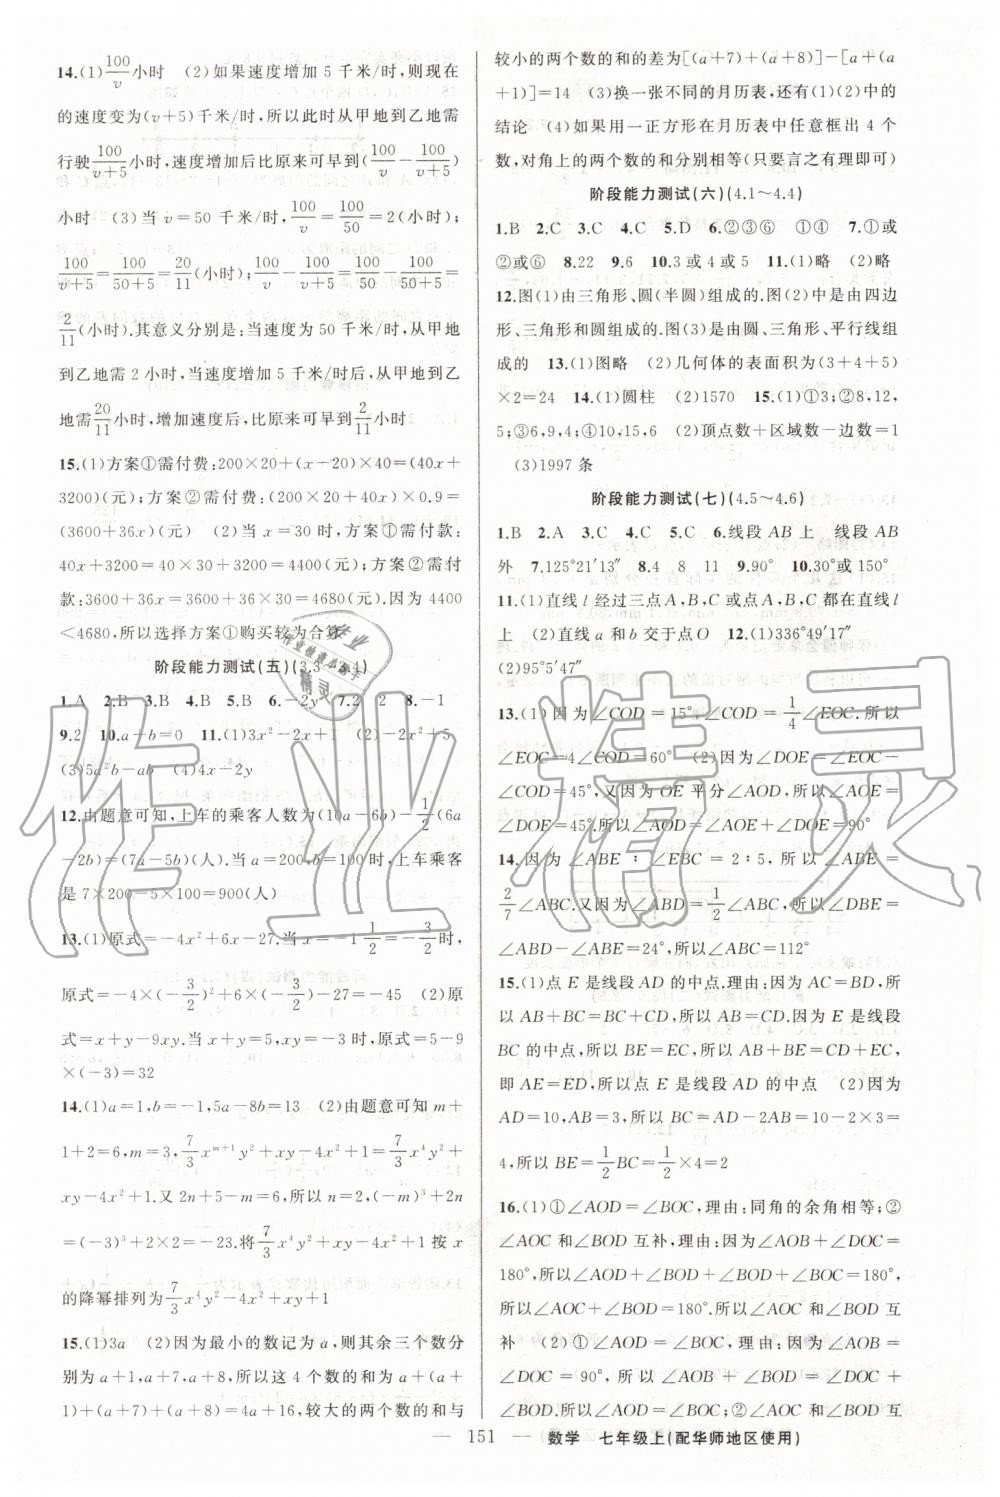 14.(1)100/v小时 (2)如果速度增加 5 千米/时,则现在
的速度变为(v+5)千米/时,所以此时从甲地到乙地需
行驶100/(v+5)小时,速度增加后比原来可早到(100/v−100/(v+5))
小时 (3)当 v=50 千米/时时,100/v=100/50=2(小时);
100/(v+5)=100/(50+5)=20/11(小时);100/v−100/(v+5)=100/50−100/(50+5)=
2/11(小时).其意义分别是:当速度为 50 千米/时,从甲地
到乙地需 2 小时,当速度增加 5 千米/时后,从甲地到乙
地需20/11小时,增加速度后,比原来可早到2/11小时
15.(1)方案①需付费:200×20+(x−20)×40=(40x+
3200)(元);方案②需付费:(200×20+40x)×0.9=
(3600+36x)(元) (2)当 x=30 时,方案①需付款:
40x+3200=40×30+3200=4400(元);方案②需付
款:3600+36x=3600+36×30=4680(元).因为 4400
<4680,所以选择方案①购买较为合算
阶段能力测试(五)(3.3~3.4)
1.A 2.B 3.B 4.B 5.B 6.−2y 7.2 2 8.−1
9.2 10.a−b=0 11.(1)3x²−2x+1 (2)−2x²+5
(3)5a²b−ab (4)4x−2y
12.由题意可知,上车的乘客人数为(10a−6b)−1/2(6a
−2b)=(7a−5b)(人).当a=200,b=100时,上车乘客
是 7×200−5×100=900(人)
13.(1)原式=−4x²+6x−27.当 x=−1 1/2=−3/2时,
原式=−4×(−3/2)²+6×(−3/2)−27=−45 (2)原
式=x+y−9xy.当 x+y=5,xy=−3 时,原式=5−9
×(−3)=32
14.(1)a=1,b=−1,5a−8b=13 (2)由题意可知 m+
1+2=6,m=3,7/3x^{m+1}y²+xy−4x²+1=7/3x⁴y²+
xy−4x²+1.又 n+2+2=6,所以 n=2,(−m)³+2n
=(−3)³+2×2=−23.将7/3x⁴y²+xy−4x²+1 按 x
的降幂排列为7/3x⁴y²−4x²+xy+1
15.(1)3a (2)因为最小的数记为 a,则其余三个数分
别为 a+1,a+7,a+8,所以这 4 个数的和为 a+(a+
1)+(a+7)+(a+8)=4a+16,较大的两个数的和与
较小的两个数的和的差为[(a+7)+(a+8)]−[a+(a
+1)]=14 (3)换一张不同的月历表,还有(1)(2)中的
结论 (4)如果用一正方形在月历表中任意框出 4 个
数,对角上的两个数的和分别相等(只要言之有理即可)
阶段能力测试(六)(4.1~4.4)
1.B 2.C 3.C 4.C 5.D 6.②③⑥ ①④ 7.①或
②或⑥ 8.22 9.6 10.3 或 4 或 5 11.(1)略 (2)略
12.图(1)由三角形、圆(半圆)组成的.图(2)中是由四边
形、三角形和圆组成的.图(3)是由圆、三角形、平行线组
成的 13.(1)图略 (2)几何体的表面积为(3+4+5)
×2=24 14.(1)圆柱 (2)1570 15.(1)①3;②8,12,
5;③6,9,4;④10,15,6 (2)顶点数+区域数−边数=1
(3)1997 条
阶段能力测试(七)(4.5~4.6)
1.B 2.A 3.C 4.C 5.C 6.线段 AB 上 线段 AB
外 7.125°21′13″ 8.4 8 11 9.90° 10.30°或 150°
11.(1)直线 l 经过三点 A,B,C 或点 A,B,C 都在直线 l
上 (2)直线 a 和 b 交于点 O 12.(1)336°49′17″
(2)95°5′47″
13.(1)因为∠COD=15°,∠COD=1/4∠EOC.所以
∠EOC=4∠COD=60° (2)因为∠DOE=∠EOC−
∠COD=45°,又因为 OE 平分∠AOD,所以∠AOE=
∠DOE=45°.所以∠AOD=∠AOE+∠DOE=90°
14.因为∠ABE∶∠EBC=2∶5,所以∠ABE=
2/7∠ABC.又因为∠ABD=1/2∠ABC,所以∠DBE=
∠ABD−∠ABE=24°,所以∠ABC=112°
15.(1)点 E 是线段 AD 的中点.理由:因为 AC=BD,所
以 AB+BC=BC+CD,所以 AB=CD.因为 E 是线段
BC 的中点,所以 BE=EC,所以 AB+BE=CD+EC,
即 AE=ED,所以点 E 是线段 AD 的中点 (2)因为
AD=10,AB=3,所以 BC=AD−2AB=10−2×3=
4,所以 BE=1/2BC=1/2×4=2
16.(1)①∠AOD=∠BOC,理由:同角的余角相等;②
∠AOC 和∠BOD 互补,理由:因为∠AOB+∠DOC=
180°,所以∠AOD+∠BOD+∠BOD+∠BOC=180°,
所以∠AOC+∠BOD=180°.所以∠AOC 和∠BOD 互
补 (2)①∠AOD=∠BOC,理由:因为∠AOB=
∠DOC=90°,所以∠AOB+∠BOD=∠DOC+
∠BOD,所以∠AOD=∠BOC;②∠AOC 和∠BOD 互
— 151 — 数学 七年级上(配华师地区使用)
作业精灵